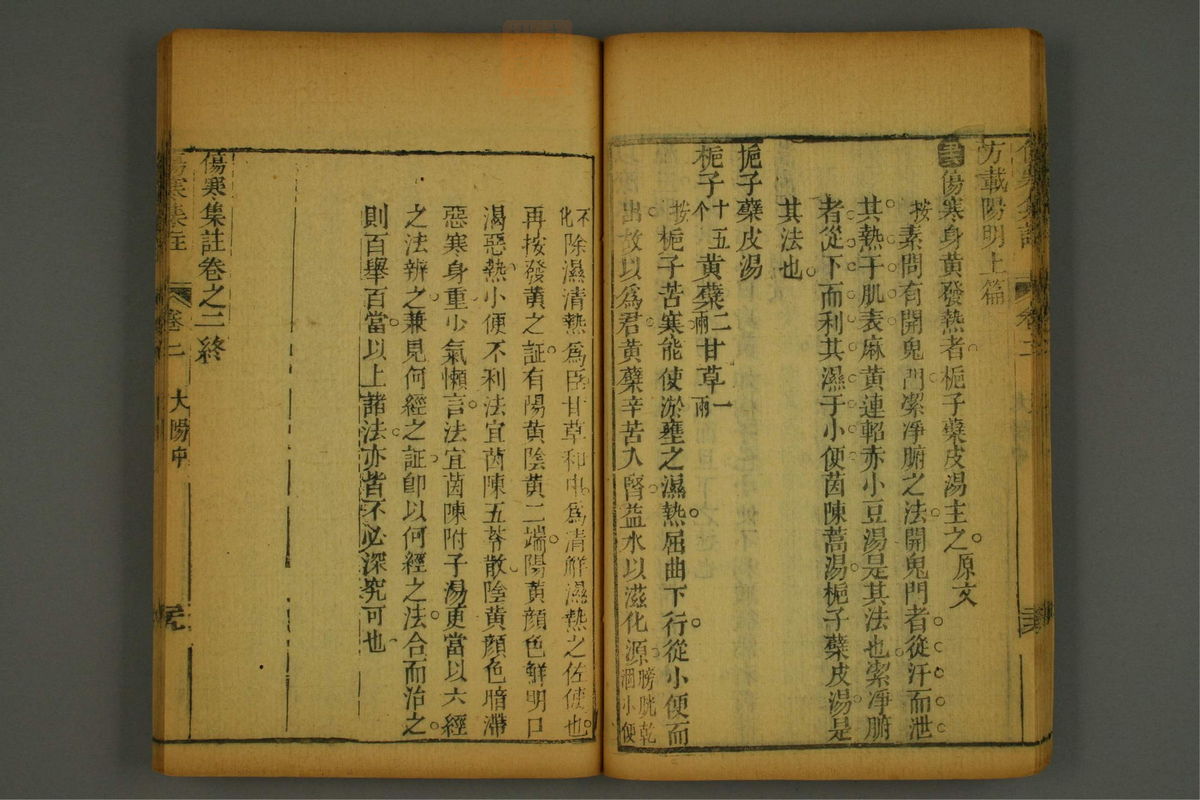 方載陽明上篇
傷寒身黃發熱者梔子蘗皮湯主之原文
按素問有開鬼門潔凈腑之法開鬼門者從汗而泄
其熱于肌表麻黃連軺赤小豆湯是其法也潔凈腑
者從下而利其濕于小便茵陳蒿湯梔子蘗皮湯是
其法也
梔子蘗皮湯
梔子十五个黃蘗二兩甘草一兩
按梔子苦寒能使淤壅之濕熱屈曲下行從小便而
出故以爲君黃蘗辛苦入腎益水以滋化源膀胱乾涸小便
不化除濕清熱爲臣甘草和中爲清解濕熱之佐使也
再按發黃之証有陽黃陰黃二端陽黃顏色鮮明口
渴惡熱小便不利法宜茵陳五苓散陰黃顏色暗滯
惡寒身重少氣懶言法宜茵陳附子湯更當以六經
之法辨之兼見何經之証卽以何經之法合而治之
則百舉百當以上諸法亦皆不必深究可也
傷寒集註卷之二終
傷寒集註 卷二 太陽中